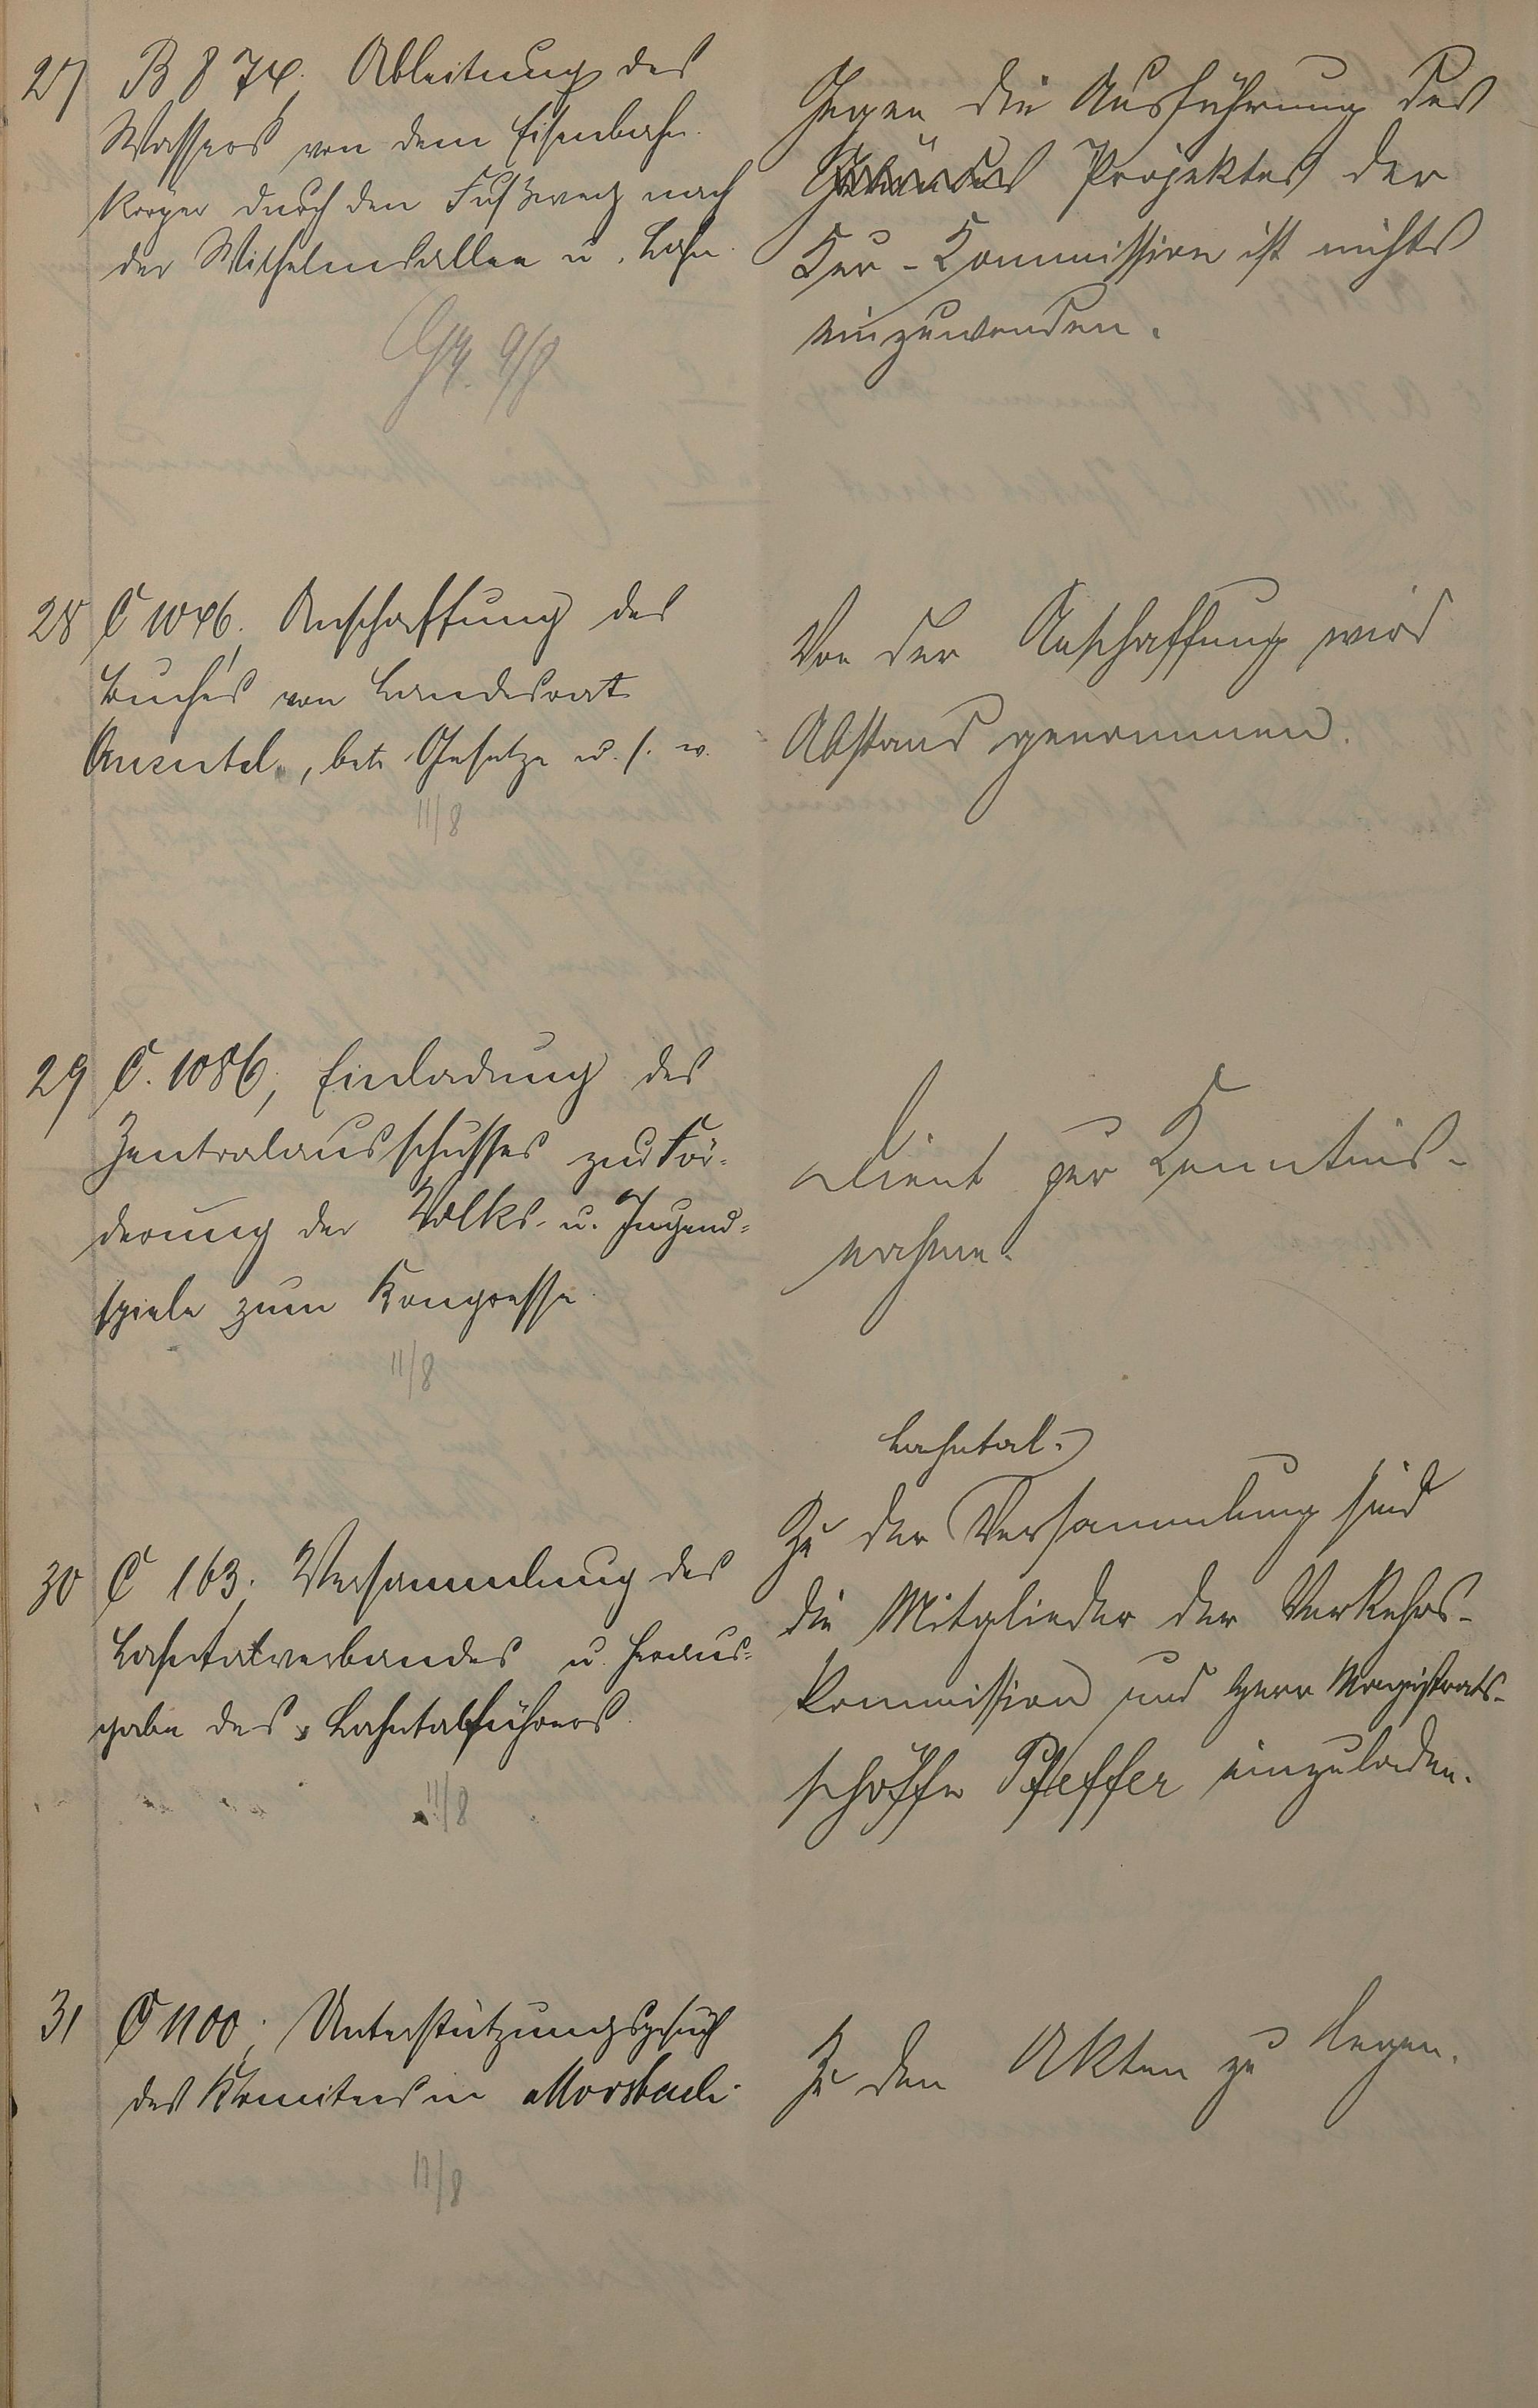 27 B 874. Ableitung des
Wassers von dem Eisenbahn-
körper durch den Fußweg nach
der Wilhelmsallee u. Lahn.
9/8
Gegen die Ausführung des
Projektes der
Kur-Kommission ist nichts
einzuwenden.
28 C 1046. Anschaffung des
Buches von Landesrat
betr. Gesetze u. s. w.
11/8
Von der Anschaffung wird
Abstand genommen.
29 C. 1086, Einladung des
Zentralausschusses zur För-
derung der Volks- u. Jugend-
spiele zum Kongresse.
11/8
Dient zur Kenntnis-
nahme.
30 C 163. Versammlung des
Lahntalverbandes u. Heraus-
gabe des Lahntalführers.
11/8
Lahntal-
Zu der Versammlung sind
die Mitglieder der Verkehrs-
kommission und Herr Magistrats-
schöffe Pfeffer einzuladen.
31 C 1100. Unterstützungsgesuch
des Komitees in Morsbach.
11/8
Zu den Akten zu legen.